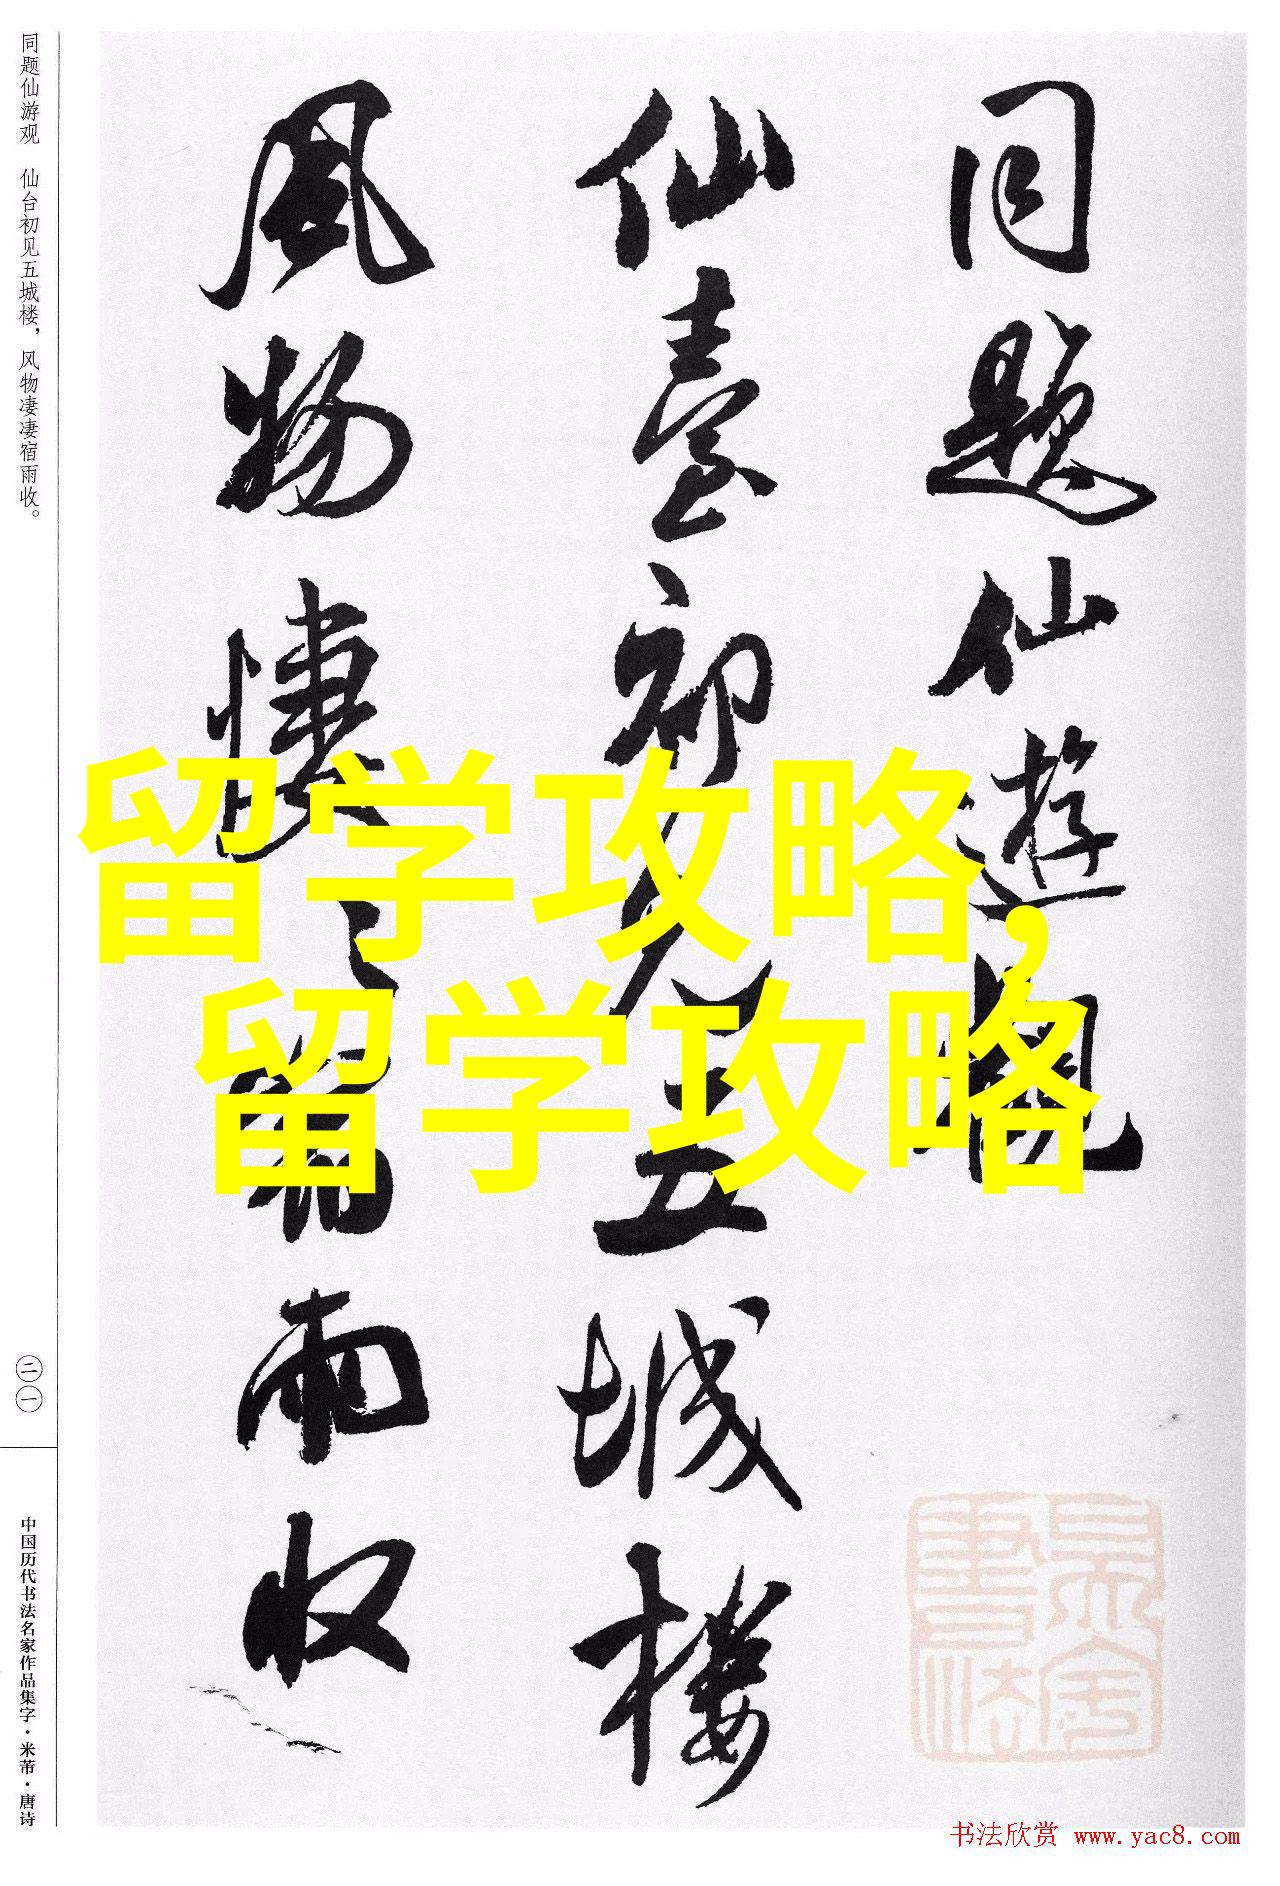 同题仙游观 仙台初见五城楼，风物凄凄宿雨收。
二一
中国历代书法名家作品集字·米芾·唐诗
同題仙遊觀
仙臺初见五城樓
風物悽〻宿雨收
留学攻略，
留学攻略
书法欣赏 www.yac8.com